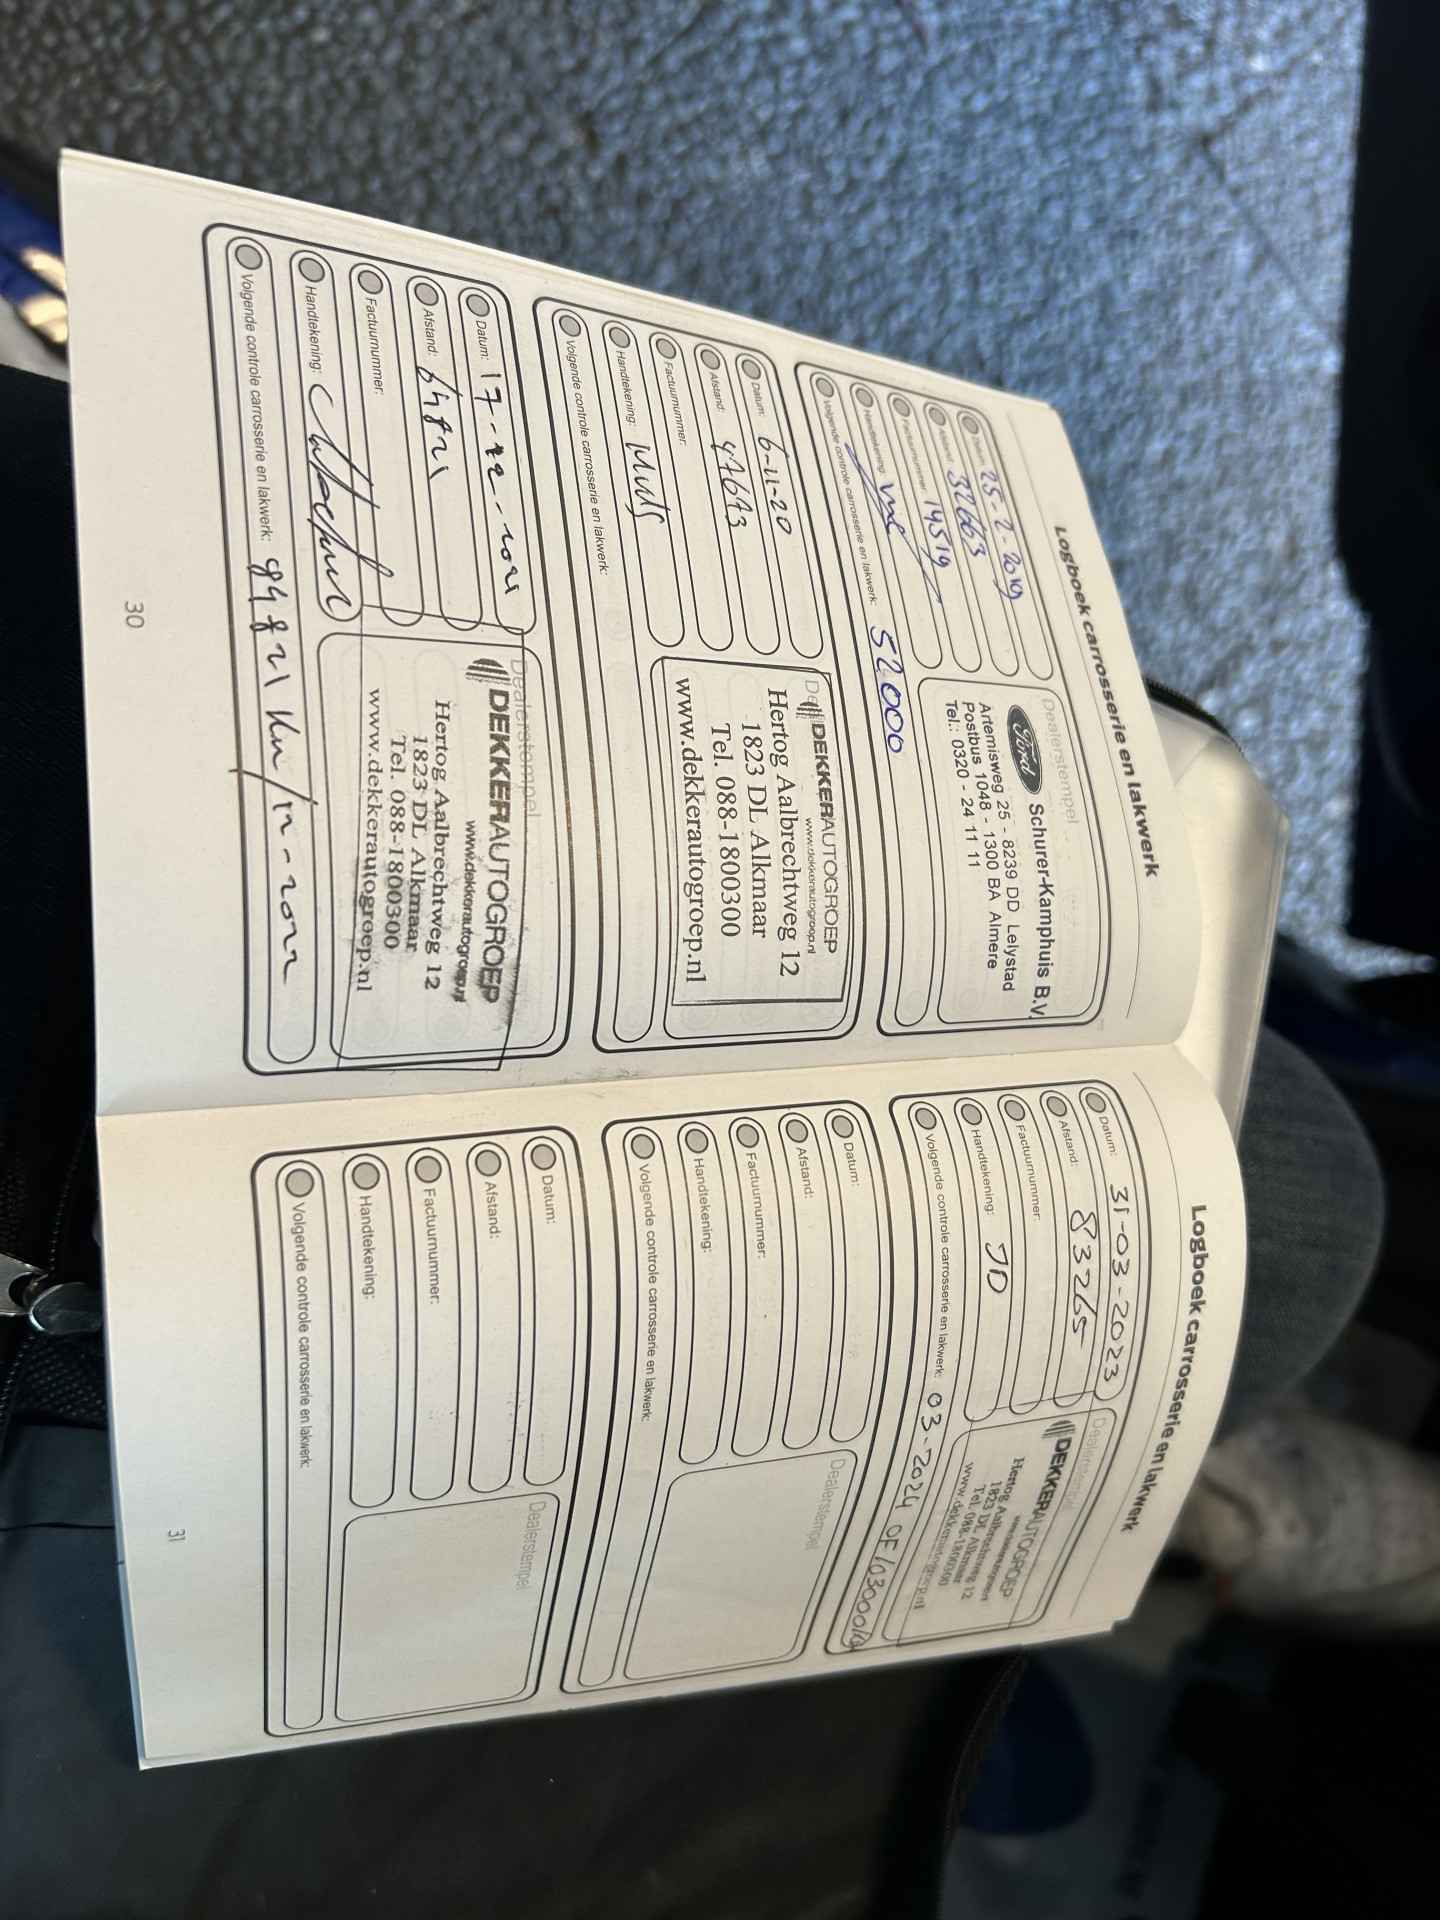 Logboek carrosserie en lakwerk
Datum: 25-2-2019
Afstand: 32663
Factuurnummer: 14519
Handtekening:
Volgende controle carrosserie en lakwerk: 52000
Dealerstempel
Ford Schurer-Kamphuis B.V.
Artemisweg 25 - 8239 DD Lelystad
Postbus 1048 - 1300 BA Almere
Tel.: 0320 - 24 11 11
Datum: 6-11-20
Afstand: 47673
Factuurnummer:
Handtekening:
Volgende controle carrosserie en lakwerk:
De
DEKKERAUTOGROEP
www.dekkerautogroep.nl
Hertog Aalbrechtweg 12
1823 DL Alkmaar
Tel. 088-1800300
www.dekkerautogroep.nl
Datum: 17-12-2021
Afstand: 64821
Factuurnummer:
Handtekening:
Volgende controle carrosserie en lakwerk: 84821 km/12-2022
Dealerstempel
DEKKERAUTOGROEP
www.dekkerautogroep.nl
Hertog Aalbrechtweg 12
1823 DL Alkmaar
Tel. 088-1800300
www.dekkerautogroep.nl
30
Logboek carrosserie en lakwerk
Datum: 31-03-2023
Afstand: 83265
Factuurnummer:
Handtekening: JD
Volgende controle carrosserie en lakwerk: 03-2024 OF 103000km
Dealerstempel
DEKKERAUTOGROEP
www.dekkerautogroep.nl
Hertog Aalbrechtweg 12
1823 DL Alkmaar
Tel. 088-1800300
www.dekkerautogroep.nl
Datum:
Afstand:
Factuurnummer:
Handtekening:
Volgende controle carrosserie en lakwerk:
Dealerstempel
Datum:
Afstand:
Factuurnummer:
Handtekening:
Volgende controle carrosserie en lakwerk:
Dealerstempel
31